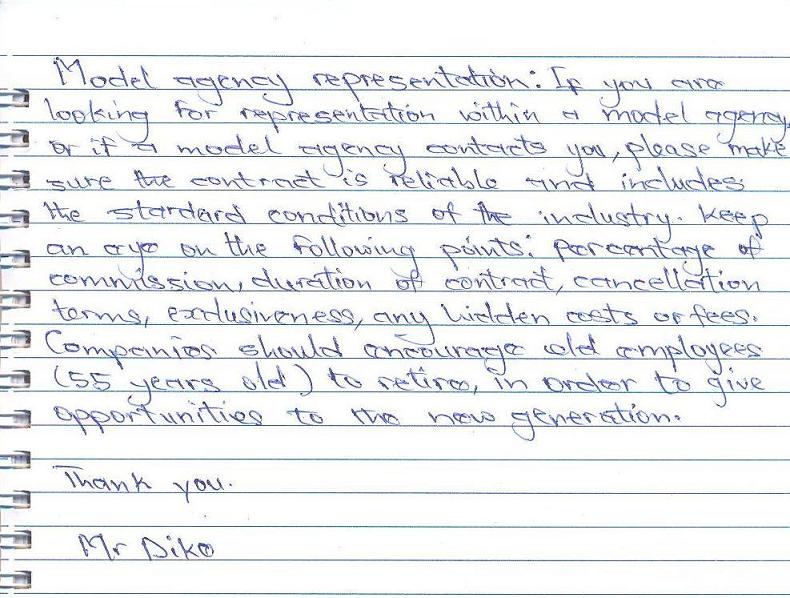 Model agency representation: If you are
looking for representation within a model agency,
or if a model agency contacts you, please make
sure the contract is reliable and includes
the standard conditions of the industry. Keep
an eye on the following points: percentage of
commission, duration of contract, cancellation
terms, exclusiveness, any hidden costs or fees.
Companies should encourage old employees
(55 years old) to retire, in order to give
opportunities to the new generation.
Thank you.
Mr Diko